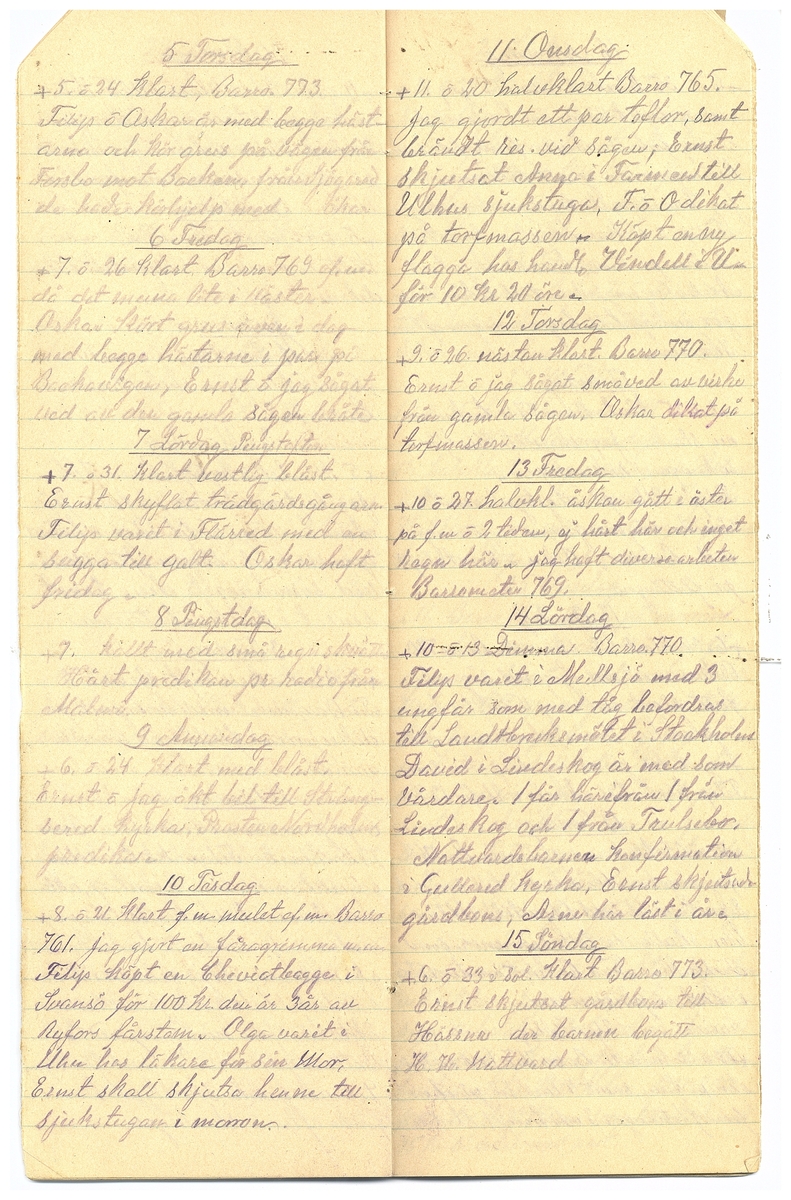 5 Torsdag
+5. ö 24 Klart, Barro. 773.
Filip ö Oskar är med begge häst
arna och kör grus på vägen från
Forsbo mot Backen, från Sjögared
de hade körhjelp med Oskar
6 Fredag
+7. ö 26 Klart Barro 769 ef. m.
då det mulna lite i Väster.
Oskar Kört grus även i dag
med begge hästarne i par på
Backavägen, Ernst ö jag sågat
ved av den gamla sågen
7 Lördag Pingstafton
+7. ö 31. Klart vestlig blåst.
Ernst skyflat trädgårdsgångarne
Filip varit i Flärred med en
bagga till galt. Oskar heft
fridag.
8 Pingstdag
+7. kallt med små regnskvätt
Hört predikan pr radio från
Malmö.
9 Annandag
+6. ö 24 klart med blåst.
Ernst ö jag åkt bil till Strängs
sered Kyrka, Prosten Nordholm
predika.
10 Tisdag
+8. ö 21 Klart f.m. mulet ef.m. Barro
761. jag gjort en fåragrimma
Filip köpt en Cheviotbagge i
Svansö för 100 Kr. den är 3år av
Ryfors fårstam. Olga varit i
Ulhu hos läkare för sin Mor,
Ernst skall skjutsa henne till
sjukstugan i morron.
11. Onsdag
+11. ö 20 halvklart Barro 765.
jag gjordt ett par toflor, samt
brändt ris. vid sågen; Ernst
skjutsat Anna i Farineu till
Ulhus sjukstuga, F. ö O dikat
på torfmassen. Köpt en ny
flagga hos handl. Vendell i U-
för 10 Kr 20 öre.
12 Torsdag
+9. ö 26. nästan klart. Barro 770.
Ernst ö jag sågat småved av virke
från gamla sågen. Oskar dikat på
torfmassen.
13 Fredag
+10 ö 27. halvkl. åskan gått i öster
på f.m ö 2 tiden, ej hårt här och inget
hagn här. jag heft diverse arbeten
Barrometer 769.
14 Lördag
+10 ö 13 Dimma Barro. 770.
Filip varit i Mullsjö med 3
ungfår som med tåg befordras
till Landtbruksmötet i Stockholm
David i Lindeskog är med som
Vårdare. 1 får härifrån 1 från
Lindeskog och 1 från Trulsebo.
Nattvardsbarnen Konfirmation
i Gullered Kyrka, Ernst skjutsade
gårdbons, Arne har läst i år.
15 Söndag
+6. ö 33 i Sol. Klart Barro 773.
Ernst skjutsat gårdbons till
Hössna der barnen begått
H. H. Nattvard